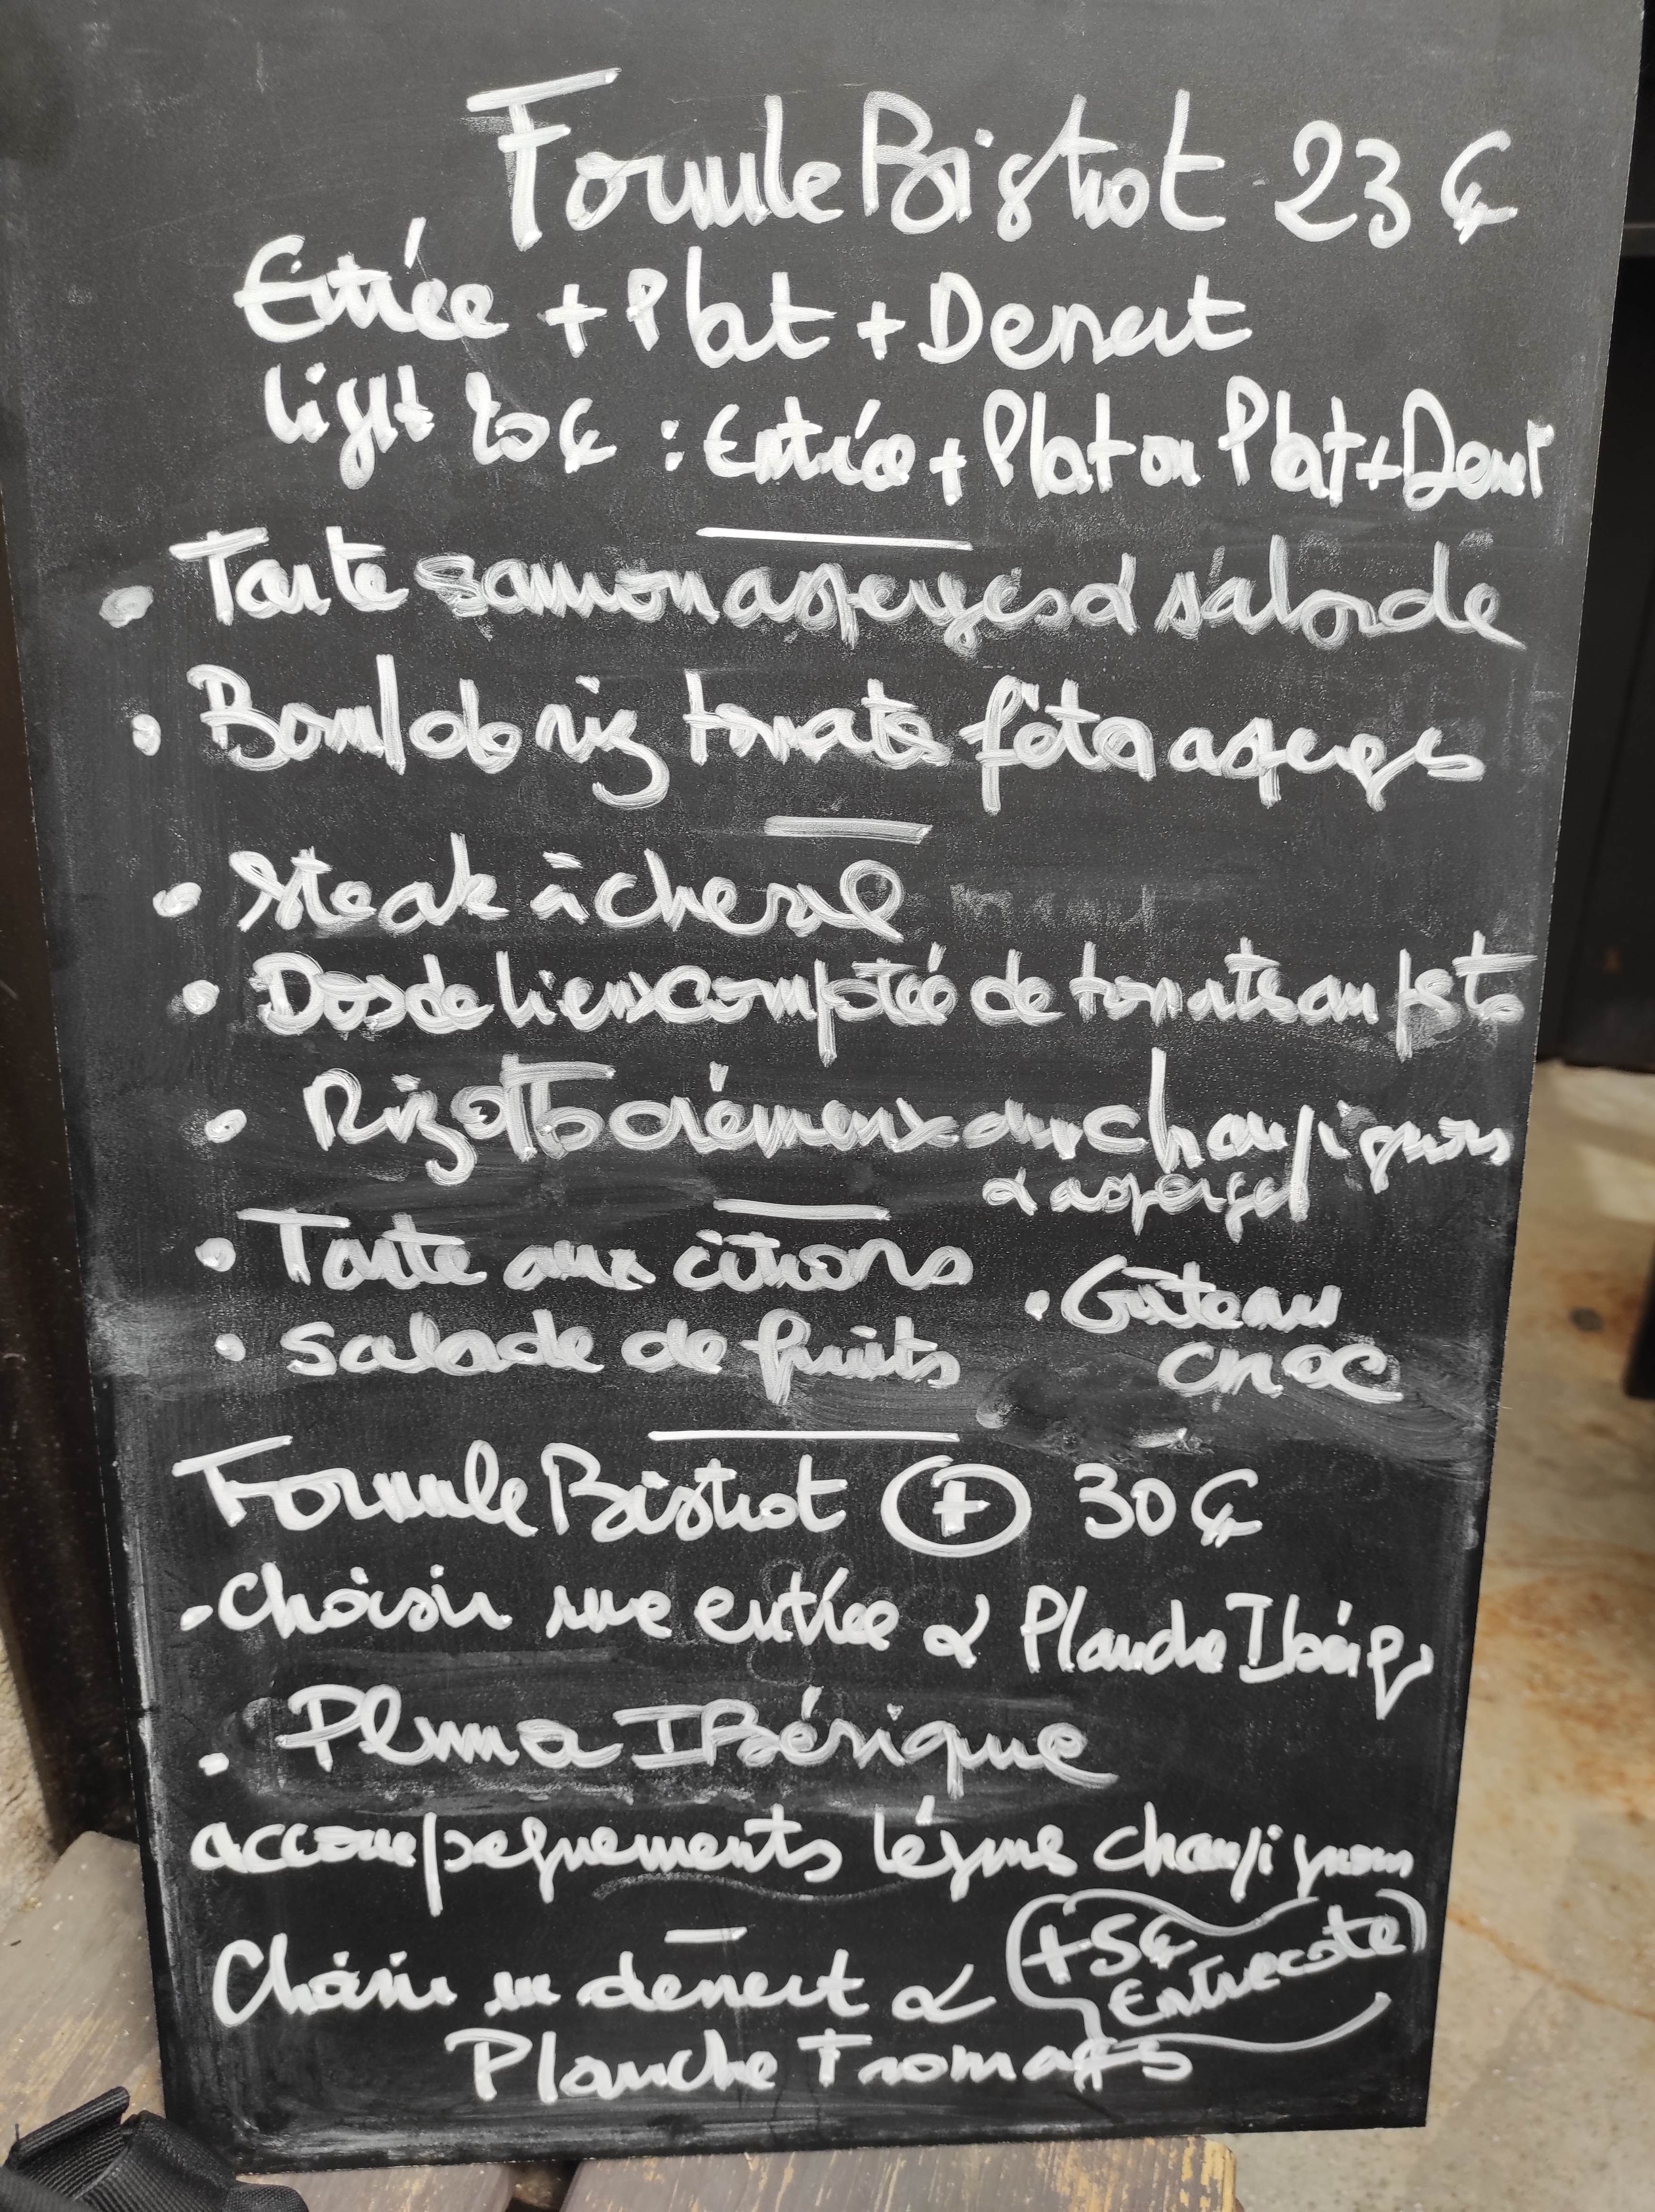 Formule Bistrot 23 €
Entrée + Plat + Dessert
Light 20 € : Entrée + Plat ou Plat + Dessert
• Tarte saumon asperges & salade
• Bowl de riz tomate féta asperges
• Steak à cheval
• Dos de lieu compotée de tomates au pesto
• Rizotto crémeux aux champignons
& asperges
• Tarte aux citrons
• Gâteau
choc
• Salade de fruits
Formule Bistrot + 30 €
• Choisir une entrée & Planche Ibériq
• Pluma IBérique
accompagnements légume champignons
+5€
Entrecote
Choisir un dessert &
Planche Fromages